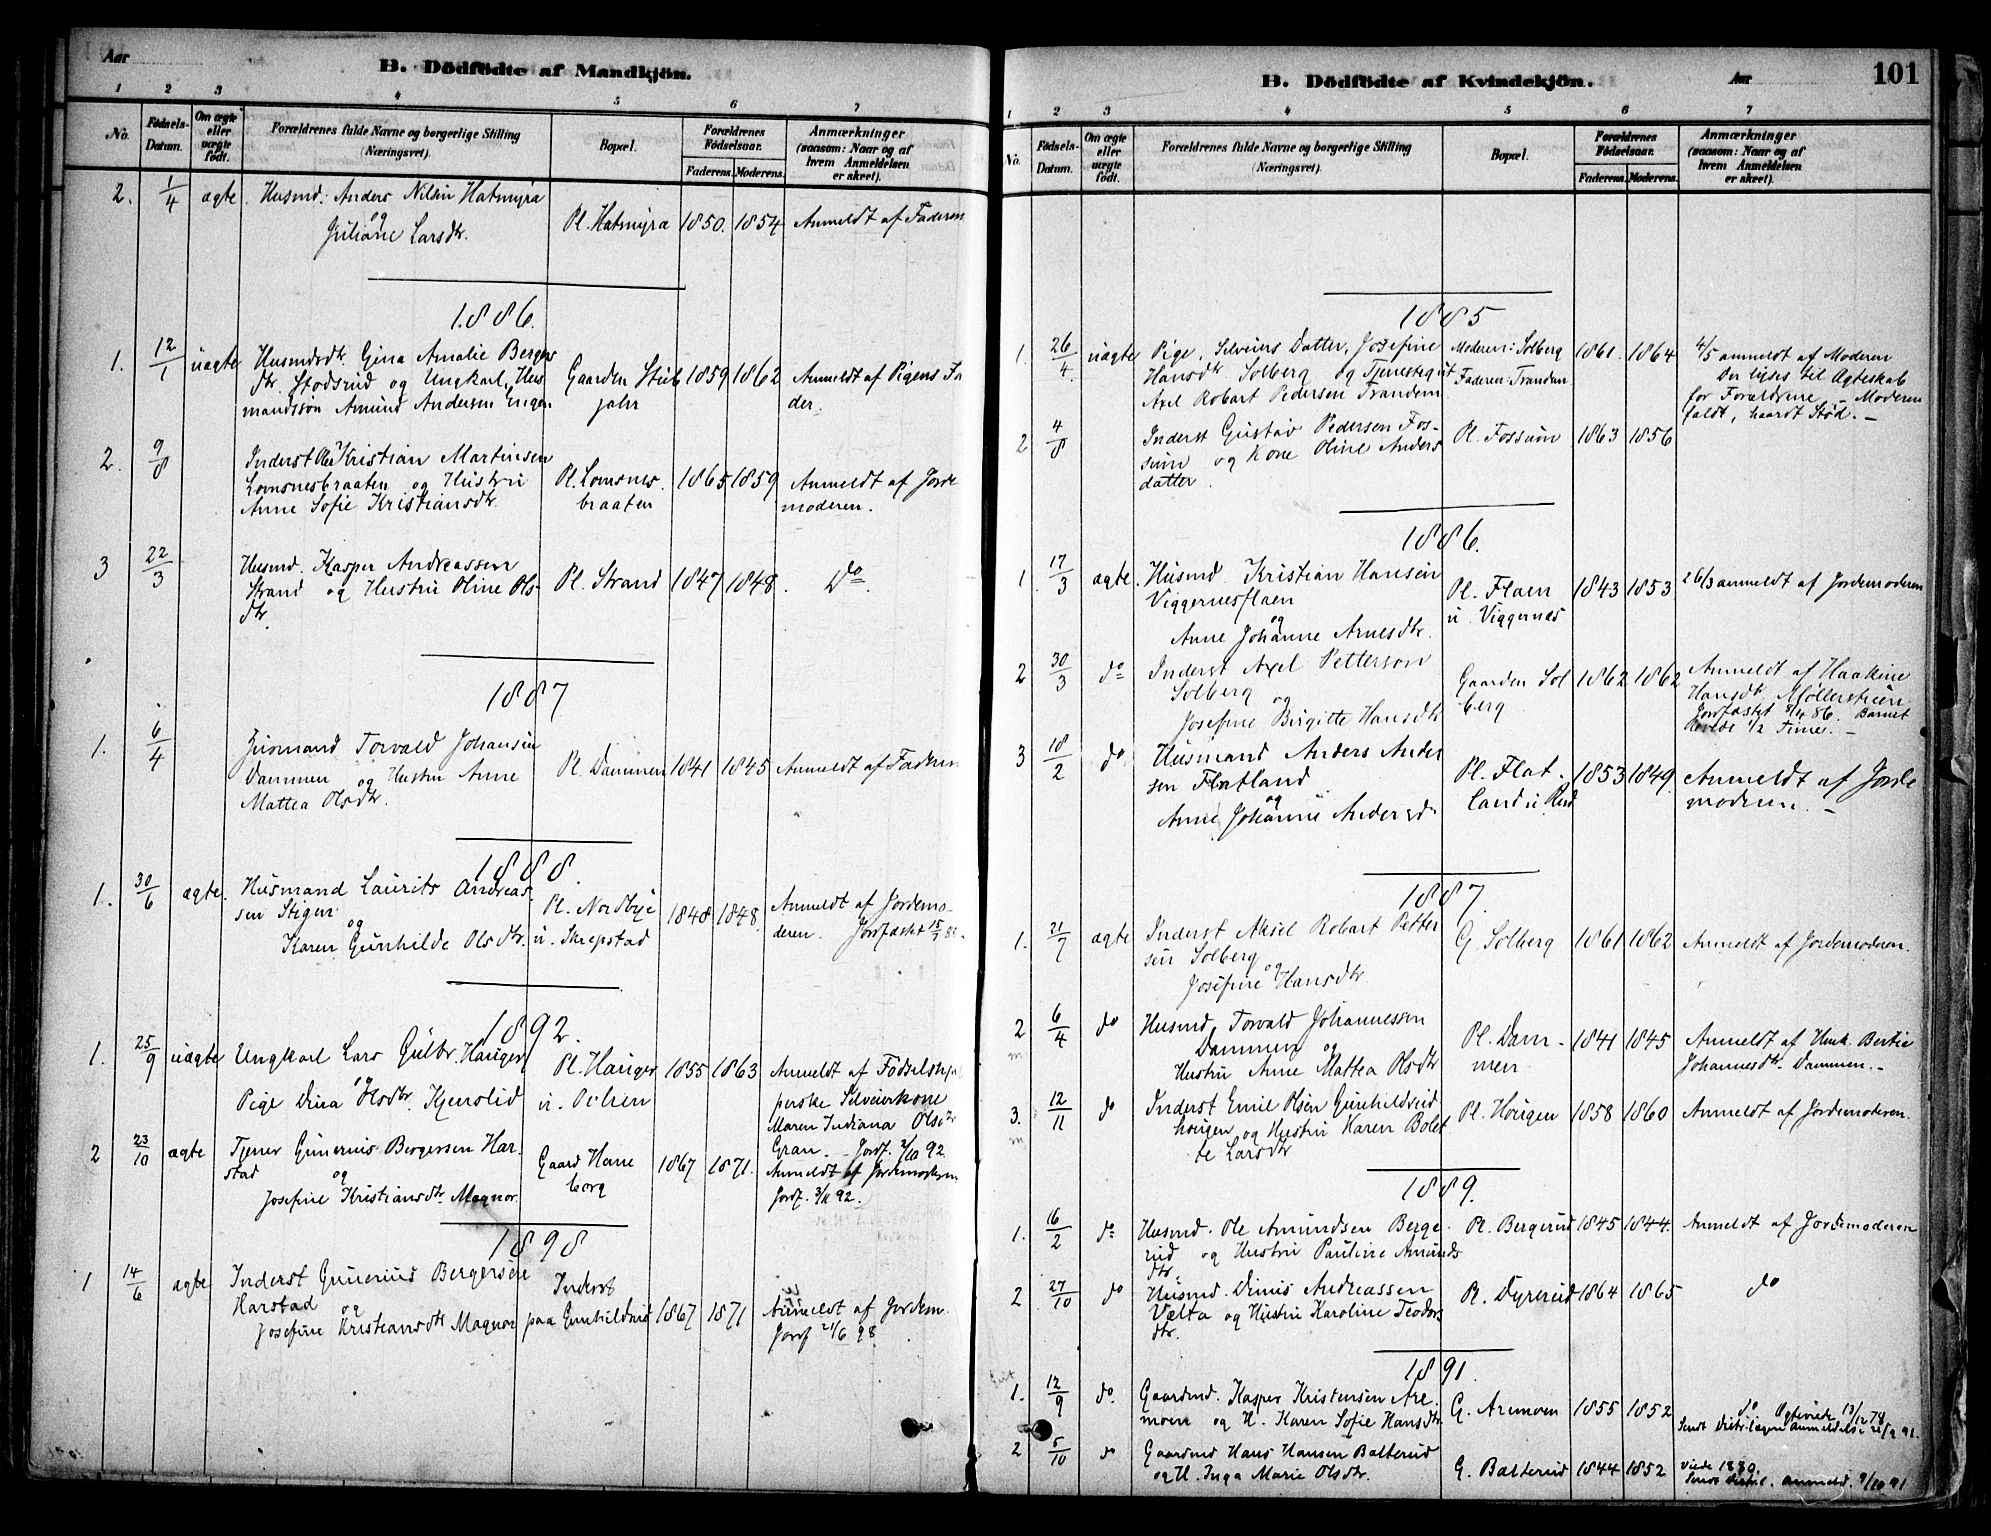 Aar
B. Dödfödte af Mandkjön.
1 2 3 4 5 6 7
No. Födsels-Datum. Om ægte eller uægte födt. Forældrenes fulde Navne og borgerlige Stilling (Næringsvei). Bopæl. Forældrenes Födselsaar. Faderens. Moderens. Anmærkninger (saasom: Naar og af hvem Anmeldelsen er skeet).
2. 1/4 ægte. Husmd. Anders Nilsen Hatmyra
og
Juliane Larsdtr. Pl. Hatmyra 1850. 1854 Anmeldt af Faderen
1886.
1. 12/1 uægte Husmdsdtr. Gina Amalie Bergers
dtr. Stodsrud og Ungkarl, Hus
mandssøn Amund Andersen Engen
Gaarden Stub
jahr 1859 1862 Anmeldt af Pigens Fa
der.
2. 9/8 Inderst Ole Kristian Martinsen
Lomsnesbraaten og Hustru
Anne Sofie Kristiansdtr.
Pl. Lomsnes
braaten 1865 1859 Anmeldt af Jorde
moderen.
3 22/3 Husmd. Kasper Andreassen
Strand og Hustru Oline Ols-
dtr. Pl. Strand 1847 1848. Do
1887
1. 6/4 Husmand Torvald Johansen
Dammen og Hustru Anne
Mattea Olsdtr. Pl. Dammen 1841 1845 Anmeldt af Faderen
1888.
1. 30/6 ægte. Husmand Laurits Andreas
sen Stigen
og
Karen Gunhilde Olsdtr.
Pl. Nordbye
u. Skrepstad 1848 1848. Anmeldt af Jordemo-
deren. Jordfæstet 15/7 88.
1892.
1. 25/9 uægte Ungkarl Lars Gulbr. Hauger
og
Pige Dina Olsdtr. Kjenslid
Pl. Hauger
u. Ochen 1855 1863 Anmeldt af Fødselshjæl
perske Selveierkone
Maren Indiana Olsdtr
Gran. Jordf. 2/10 92
2 23/10 ægte Tjener Gunerius Bergersen Har-
stad
og
Josefine Kristiansdtr. Magnor.
Gaard Hane
borg 1867 1871. Anmeldt af Jordemoderen
Jordf. 3/11 92.
1898
1 14/6 ægte Inderst Gunerius Bergersen
Harstad og
Josefine Kristiansdtr Magnor
Inderst
paa Gunhildrud 1867 1871 Anmeldt af Jordem.
Jordf 21/6 98.
B. Dödfödte af Kvindekjön.
Aar
101
1 2 3 4 5 6 7
No. Födsels-Datum. Om ægte eller uægte födt. Forældrenes fulde Navne og borgerlige Stilling (Næringsvei). Bopæl. Forældrenes Födselsaar. Faderens. Moderens. Anmærkninger (saasom: Naar og af hvem Anmeldelsen er skeet).
1885
1. 26/4 uægte Pige, Selveiers Datter, Josefine
Hansdtr Solberg og Tjenestegut
Axel Robart Pedersen Trandem
Moderen: Solberg
Faderen: Trandem 1861. 1864 4/5 anmeldt af Moderen
Der lyses til Ægteskab
for Forældrene. Moderen
faldt, haardt Stød.
2 4/8 Inderst Gustav Pedersen Fos-
sum og Kone Oline Anders
datter. Pl. Fossum 1863 1856
1886.
1. 17/3 ægte. Husmd. Kristian Hansen
Viggernesflaen
og
Anne Johanne Arnesdtr.
Pl. Flaen
u. Viggernes 1843 1853 26/3 anmeldt af Jordemoderen
2 30/3 do Inderst Axel Petterson
Solberg og
Josefine Birgitte Hansdtr
Gaarden Sol
berg 1862 1862 Anmeldt af Haakine
Hansdtr. Møllerstuen
Jordfæstet /4 86. Barnet
levede 1/2 Time.
3 18/2 do Husmand Anders Ander
sen Flatland
og
Anne Johanne Andersd.
Pl. Flat-
land u. Rud 1853 1849. Anmeldt af Jorde
moderen.
1887.
1. 21/7 ægte Inderst Aksel Robart Petter
sen Solberg
og
Josefine Hansdtr
G. Solberg 1861 1862 Anmeldt af Jordemoderen.
2 6/4 do Husmd. Torvald Johannessen
Dammen og
Hustru Anne Mattea Olsdtr
Pl. Dam-
men 1841 1845 Anmeldt af Husk. Bertie
Johannesdtr. Dammen.
3. 12/11 do Inderst Emil Olsen Gunhildrud
hougen og Hustru Karen Bolet
te Larsdtr Pl. Hougen 1858 1860 Anmeldt af Jordemoderen.
1889.
1. 16/2 do Husmd. Ole Amundsen Berge-
rud og Hustru Pauline Amunds
dtr. Pl. Bergerud 1845 1844. Anmeldt af Jordemoderen
2 27/10 do Husmd. Dinus Andreassen
Vælta og Hustru Karoline Teodors
dtr. Pl. Dyrerud 1864 1865 do
1891.
1. 12/9 do Gaardmd. Kasper Kristensen Are
moen og H. Karen Sofie Hansdtr.
G. Aremoen 1855 1852 do Ægteviede 13/12 78
Sendt Distr. lægen Anmeldelse 21/9 91.
2 5/10 do Gaardmd Hans Hansen Balterud
og H. Inga Marie Olsdtr.
G. Balterud 1844 1852 viede 1880.
Sendt Distr. l. anmeld. 9/10 91